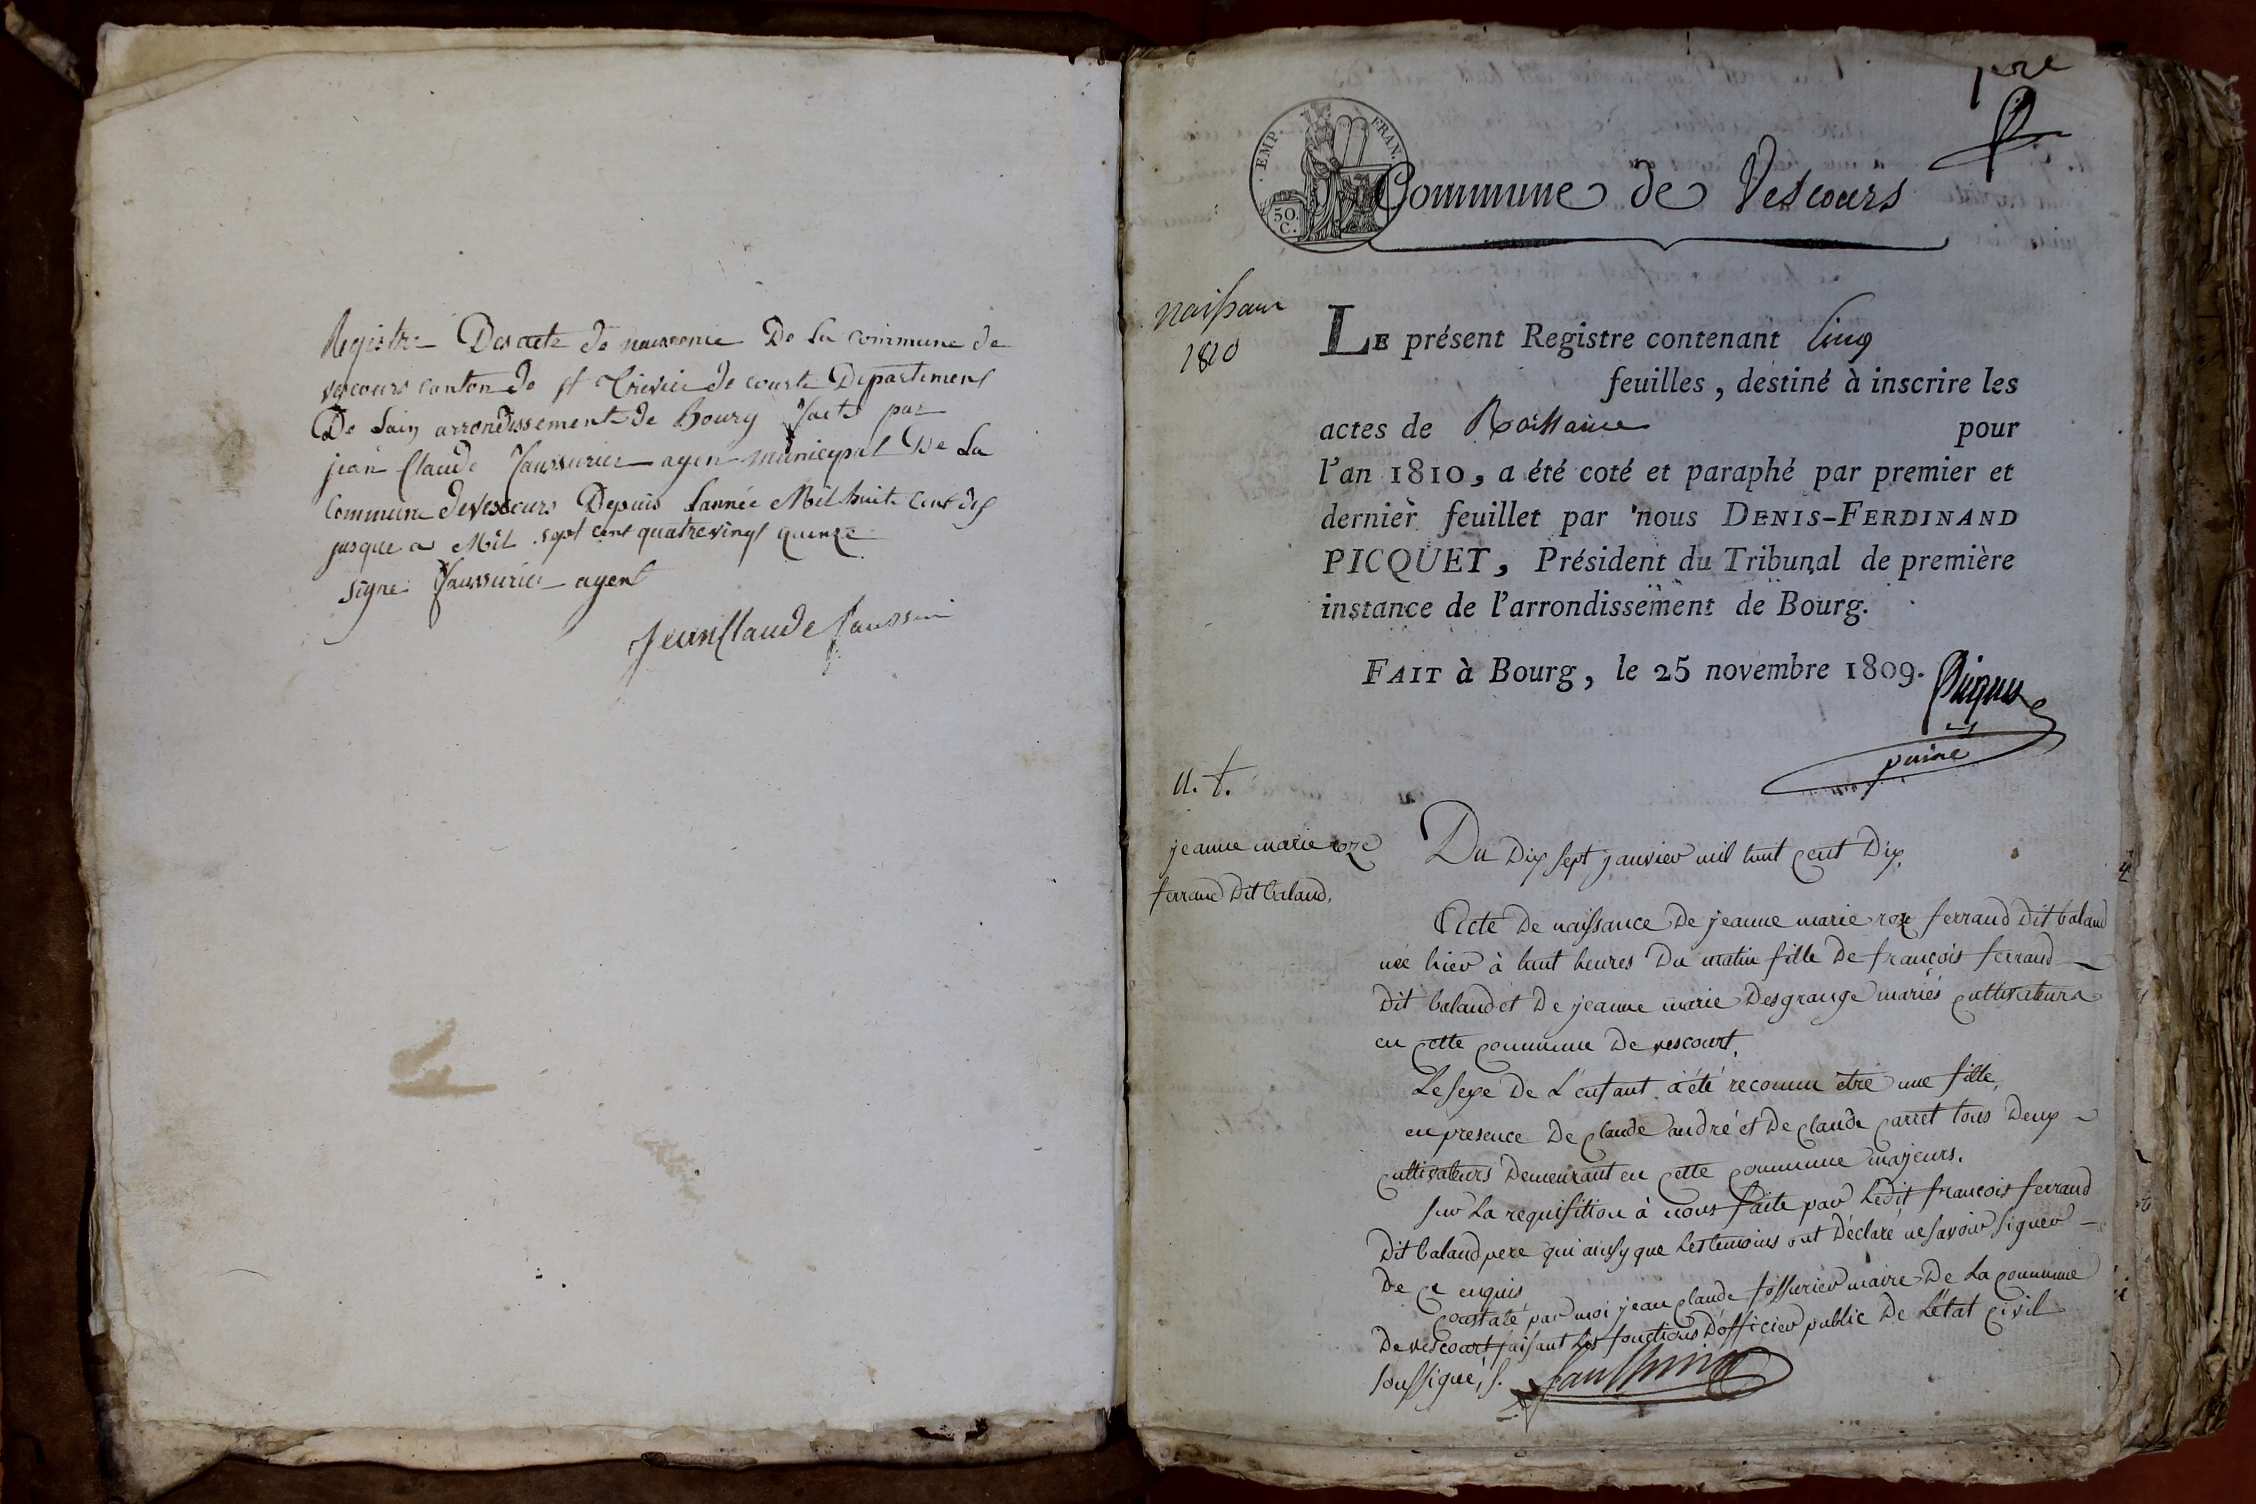 Registre Des acte de naissence De La Commune de
vescours canton de st Trivier de courte Departement
De Lain arrondissement de Bourg fact par
jean Claude faussurier agen municypal De La
Commune de vescours Depuis Lannée Mil huite Cent dix
jusque a Mil sept cent quatrevingt quinze
signe faussurier agent
Jean Claude
1ere
EMP. FRAN.
50.
C.
Commune de Vescours
naissance
1810
LE présent Registre contenant Cinq
feuilles, destiné à inscrire les
actes de Naissance pour
l'an 1810, a été coté et paraphé par premier et
dernier feuillet par nous DENIS-FERDINAND
PICQUET, Président du Tribunal de première
instance de l'arrondissement de Bourg.
FAIT à Bourg, le 25 novembre 1809.
Picquet
jeanne marie roze
ferrand Dit baland.
Du Dix sept janvier mil huit cent Dix.
Acte De naissance De jeanne marie roze ferrand Dit baland
née hier à huit heures Du matin fille De françois ferrand
Dit baland et De jeanne marie Desgrange mariés cultivateurs
en cette commune De vescourt.
Le sexe De L'enfant a été reconnu être une fille,
en presence De claude andré et De claude carret tous Deux
cultivateurs Demeurant en cette commune majeurs.
sur La requisition à nous faite par Ledit francois ferrand
Dit baland pere qui ainsy que Les temoins ont Déclaré ne savoir signer
De ce enquis
Constaté par moi jean claude fossurier maire De La commune
De vescourt faisant les fonctions D'officier public De L'état civil
soussigné, s.